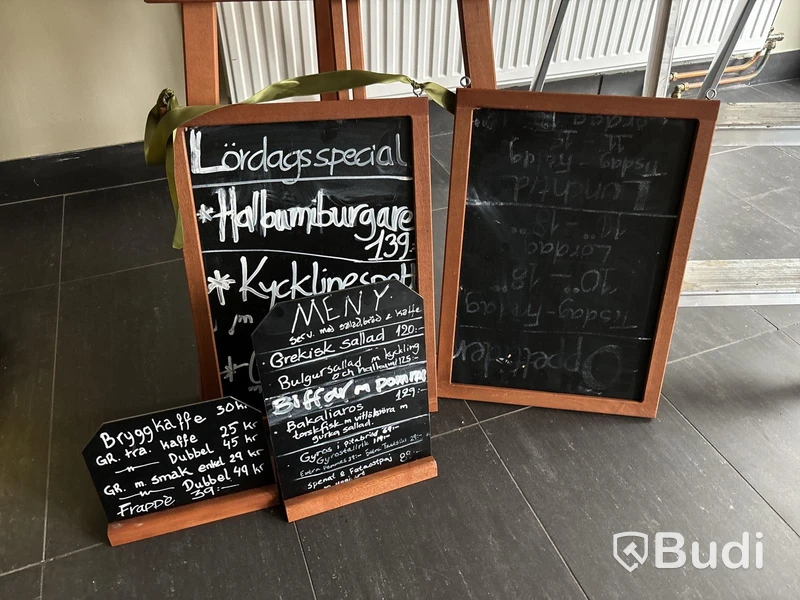 Lördagsspecial
*Halloumiburgare
139:-
*Kycklingspett
m
MENY
serv. med sallad, bröd & kaffe
Grekisk sallad 120:-
Bulgursallad m kyckling
och halloumi 125:-
Biffar m pommes
Bakaliaros 129:-
torskfisk m vitlöksröra m
gurka sallad.
Gyros i pitabröd
Gyrostallrik 119:-
Spenat & Fetaostpaj
Bryggkaffe 30kr
GR. tra. kaffe 25 kr
Dubbel 45 kr
GR. m. smak enkel 29 kr
Dubbel 49 kr
Frappè 39:-
Öppettider
Tisdag-Fredag
10⁰⁰ - 18⁰⁰
Lördag
Lunchtid
Tisdag - Fredag
Budi